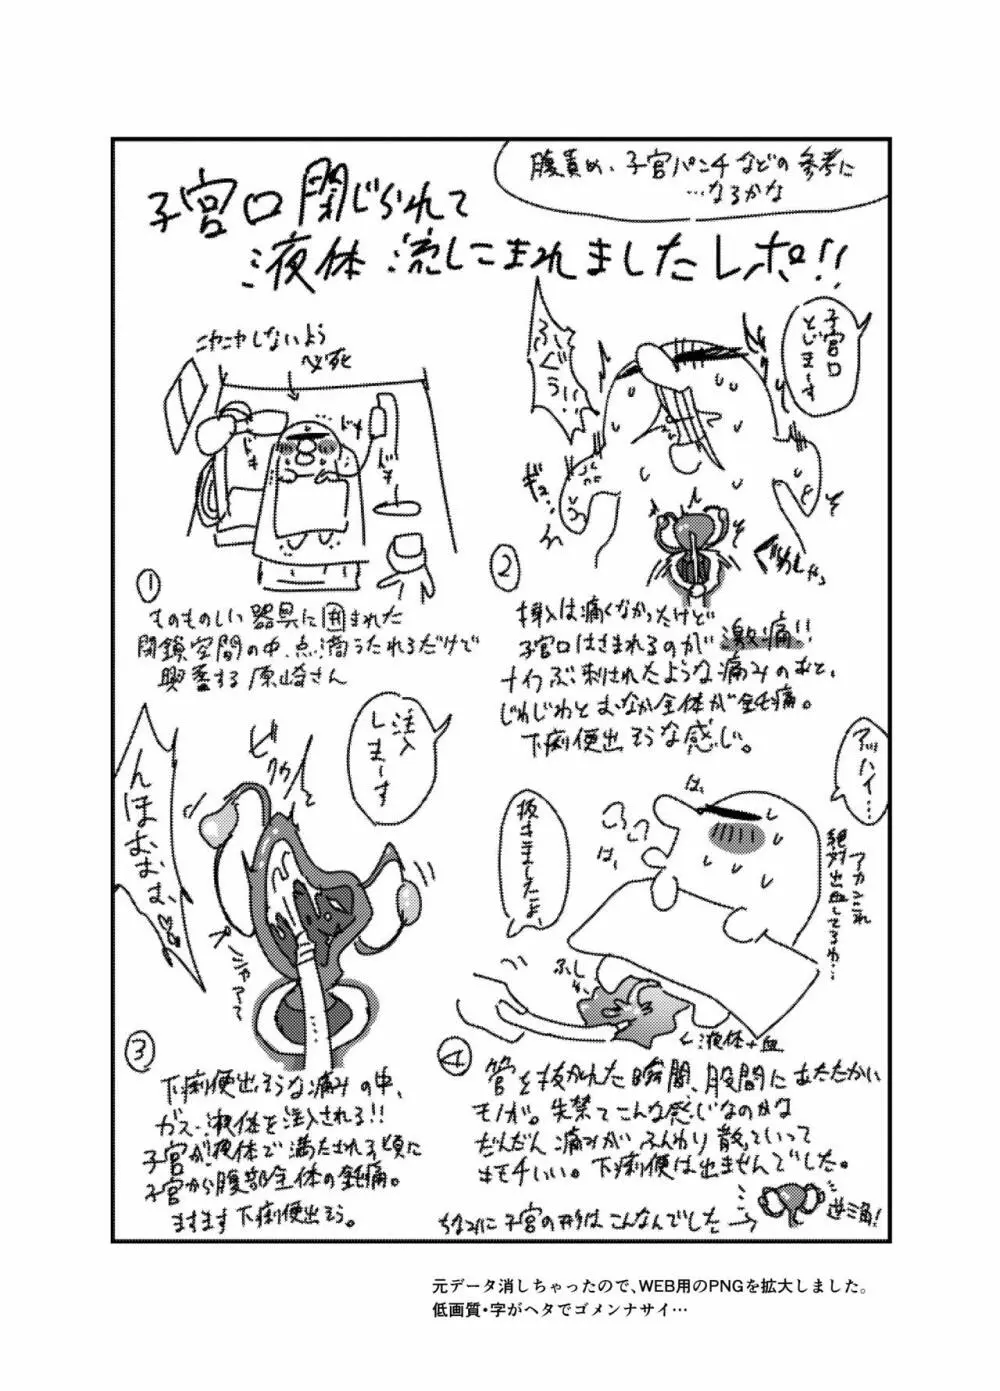 腹責め、子宮パンチなどの参考に
…なるかな
子宮口閉じられて
液体流しこまれましたレポ!!
ニヤニヤしないよう
必死
ドキ
ドキ
ドキ
①
ものものしい器具に囲まれた
閉鎖空間の中、点滴うたれるだけで
興奮する原崎さん
子宮口
とじまーす
ふぐうぅ
②
挿入は痛くなかったけど
子宮口はさまれるのが激痛!!
ナイフぶっ刺されたような痛みのあと、
じわじわとおなか全体が鈍痛。
下痢便出そうな感じ。
注入
しまーす
ビクッ
んほおおお、
③
下痢便出そうな痛みの中、
ガス・液体を注入される!!
子宮が液体で満たされる頃に
子宮から腹部全体の鈍痛。
ますます下痢便出そう。
アッハイ…
アカンこれ
絶対出血してるわ…
抜きましたよ、
←液体+血
④
管を抜かれた瞬間、股間にあたたかい
モノが。失禁てこんな感じなのかな
だんだん痛みがふんわり散っていって
キモチいい。下痢便は出ませんでした。
ちなみに子宮の形はこんなんでした→
逆三角!
元データ消しちゃったので、WEB用のPNGを拡大しました。
低画質・字がヘタでゴメンナサイ…